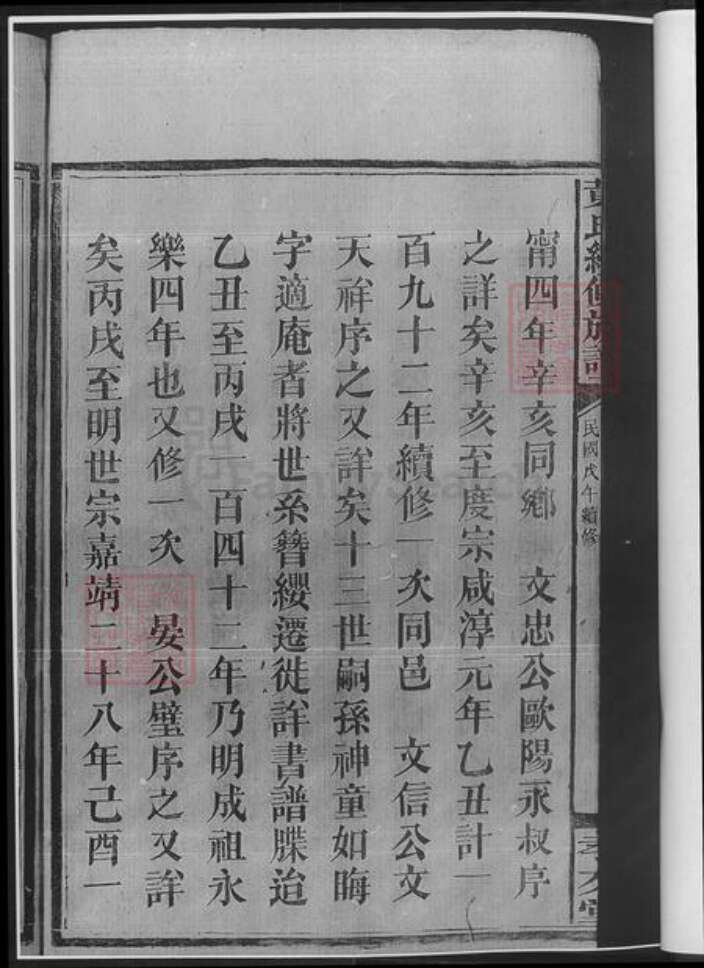 黃氏續修族譜
民國戊午續修
甯四年辛亥同鄉 文忠公歐陽永叔序
之詳矣辛亥至度宗咸淳元年乙丑計一
百九十二年續修一次同邑 文信公文
天祥序之又詳矣十三世嗣孫神童如晦
字適庵者將世系簪纓遷徙詳書譜牒迨
乙丑至丙戌一百四十二年乃明成祖永
樂四年也又修一次 晏公璧序之又詳
矣丙戌至明世宗嘉靖二十八年己酉一